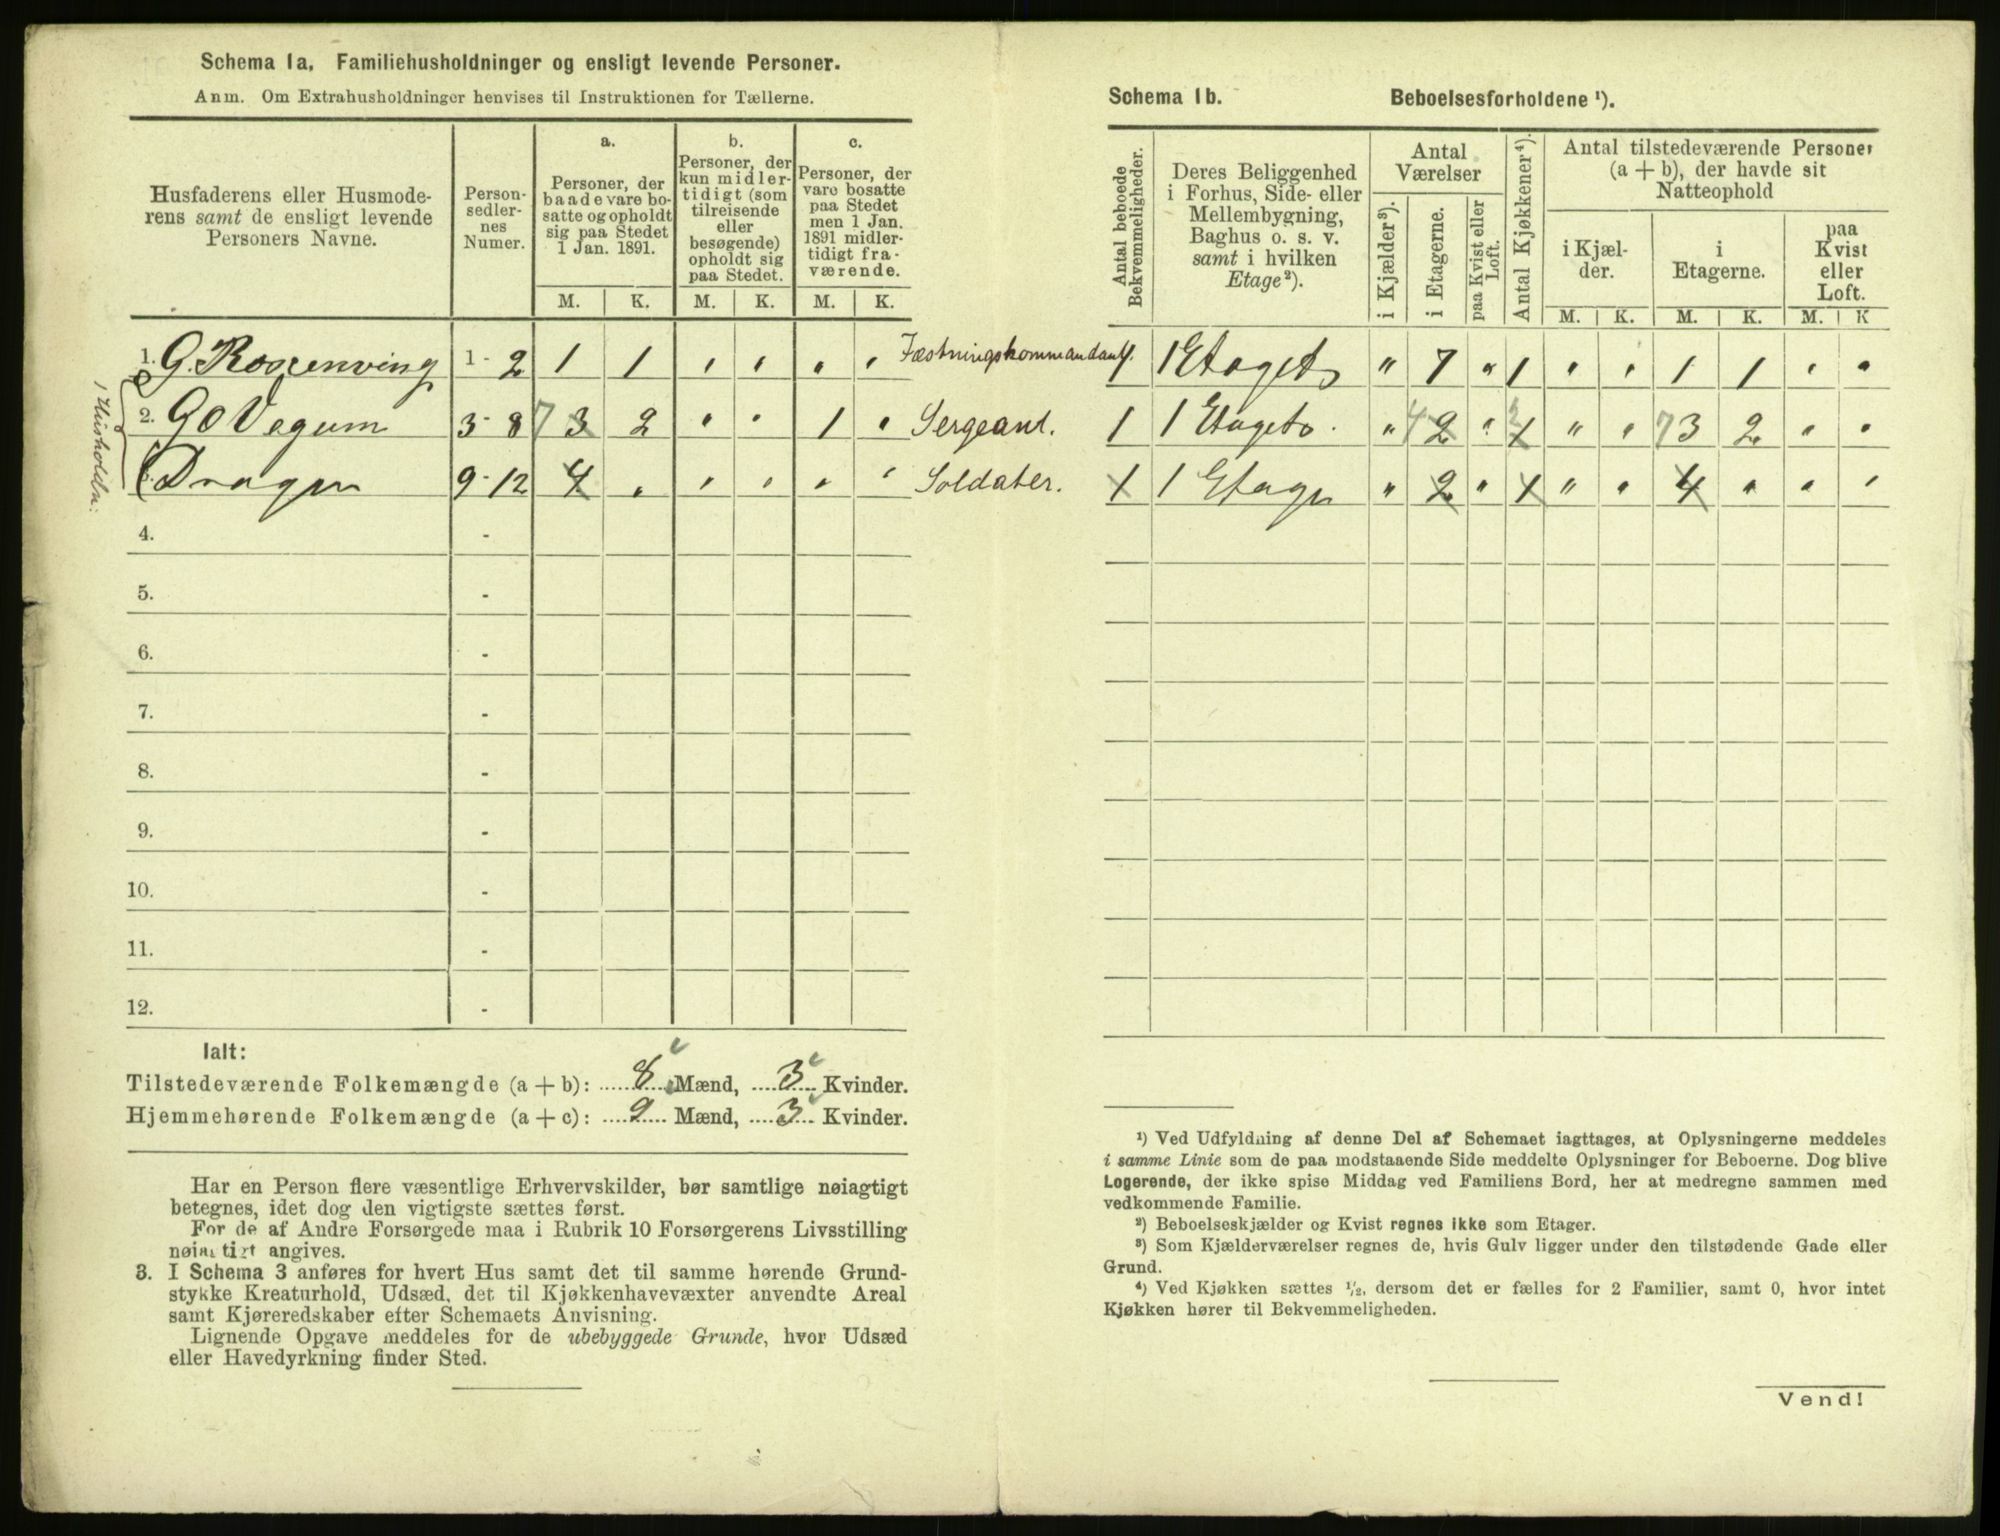 Schema 1a. Familiehusholdninger og ensligt levende Personer.
Anm. Om Extrahusholdninger henvises til Instruktionen for Tællerne.
Husfaderens eller Husmode-
rens samt de ensligt levende
Personers Navne.
Person-
sedler-
nes
Numer.
a.
Personer, der
baade vare bo-
satte og opholdt
sig paa Stedet
1 Jan. 1891.
b.
Personer, der
kun midler-
tidigt (som
tilreisende
eller
besøgende)
opholdt sig
paa Stedet.
c.
Personer, der
vare bosatte
paa Stedet
men 1 Jan.
1891 midler-
tidigt fra-
værende.
M. K. M. K. M. K.
1. G. Rosenving 1 - 2 1 1 " " " " Fæstningskommandant.
2. G O Vegum 3 - 8 7 3 2 " " 1 " Sergeant.
Dragen 9 - 12 4 " " " " " Soldater.
1 Husholdn:
4. -
5. -
6. -
7. -
8. -
9. -
10. -
11. -
12. -
Ialt:
Tilstedeværende Folkemængde (a + b): 8 Mænd, 3 Kvinder.
Hjemmehørende Folkemængde (a + c): 9 Mænd, 3 Kvinder.
Har en Person flere væsentlige Erhvervskilder, bør samtlige nøiagtigt
betegnes, idet dog den vigtigste sættes først.
For de af Andre Forsørgede maa i Rubrik 10 Forsørgerens Livsstilling
nøiagtigt angives.
3. I Schema 3 anføres for hvert Hus samt det til samme hørende Grund-
stykke Kreaturhold, Udsæd, det til Kjøkkenhavevæxter anvendte Areal
samt Kjøreredskaber efter Schemaets Anvisning.
Lignende Opgave meddeles for de ubebyggede Grunde, hvor Udsæd
eller Havedyrkning finder Sted.
Schema 1b. Beboelsesforholdene ¹).
Antal beboede
Bekvemmeligheder.
Deres Beliggenhed
i Forhus, Side- eller
Mellembygning,
Baghus o. s. v.
samt i hvilken
Etage²).
Antal
Værelser
i Kjælder³).
i Etagerne.
paa Kvist eller
Loft.
Antal Kjøkkener⁴).
Antal tilstedeværende Personer
(a + b), der havde sit
Natteophold
i Kjæl-
der.
i
Etagerne.
paa
Kvist
eller
Loft.
M. K. M. K. M. K
1 1 " 7 " 1 " " 1 1 " "
1 1 " 4 2 " 1 " " 7 3 2 " "
1 1 Etage " 2 " 1 " " 4 " " "
¹) Ved Udfyldning af denne Del af Schemaet iagttages, at Oplysningerne meddeles
i samme Linie som de paa modstaaende Side meddelte Oplysninger for Beboerne. Dog blive
Logerende, der ikke spise Middag ved Familiens Bord, her at medregne sammen med
vedkommende Familie.
²) Beboelseskjælder og Kvist regnes ikke som Etager.
³) Som Kjælderværelser regnes de, hvis Gulv ligger under den tilstødende Gade eller
Grund.
⁴) Ved Kjøkken sættes ½, dersom det er fælles for 2 Familier, samt 0, hvor intet
Kjøkken hører til Bekvemmeligheden.
Vend!